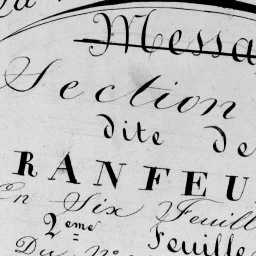 Messa
Section
dite de
RANFEU
En Six Feuill
2eme Feuille
Du N°